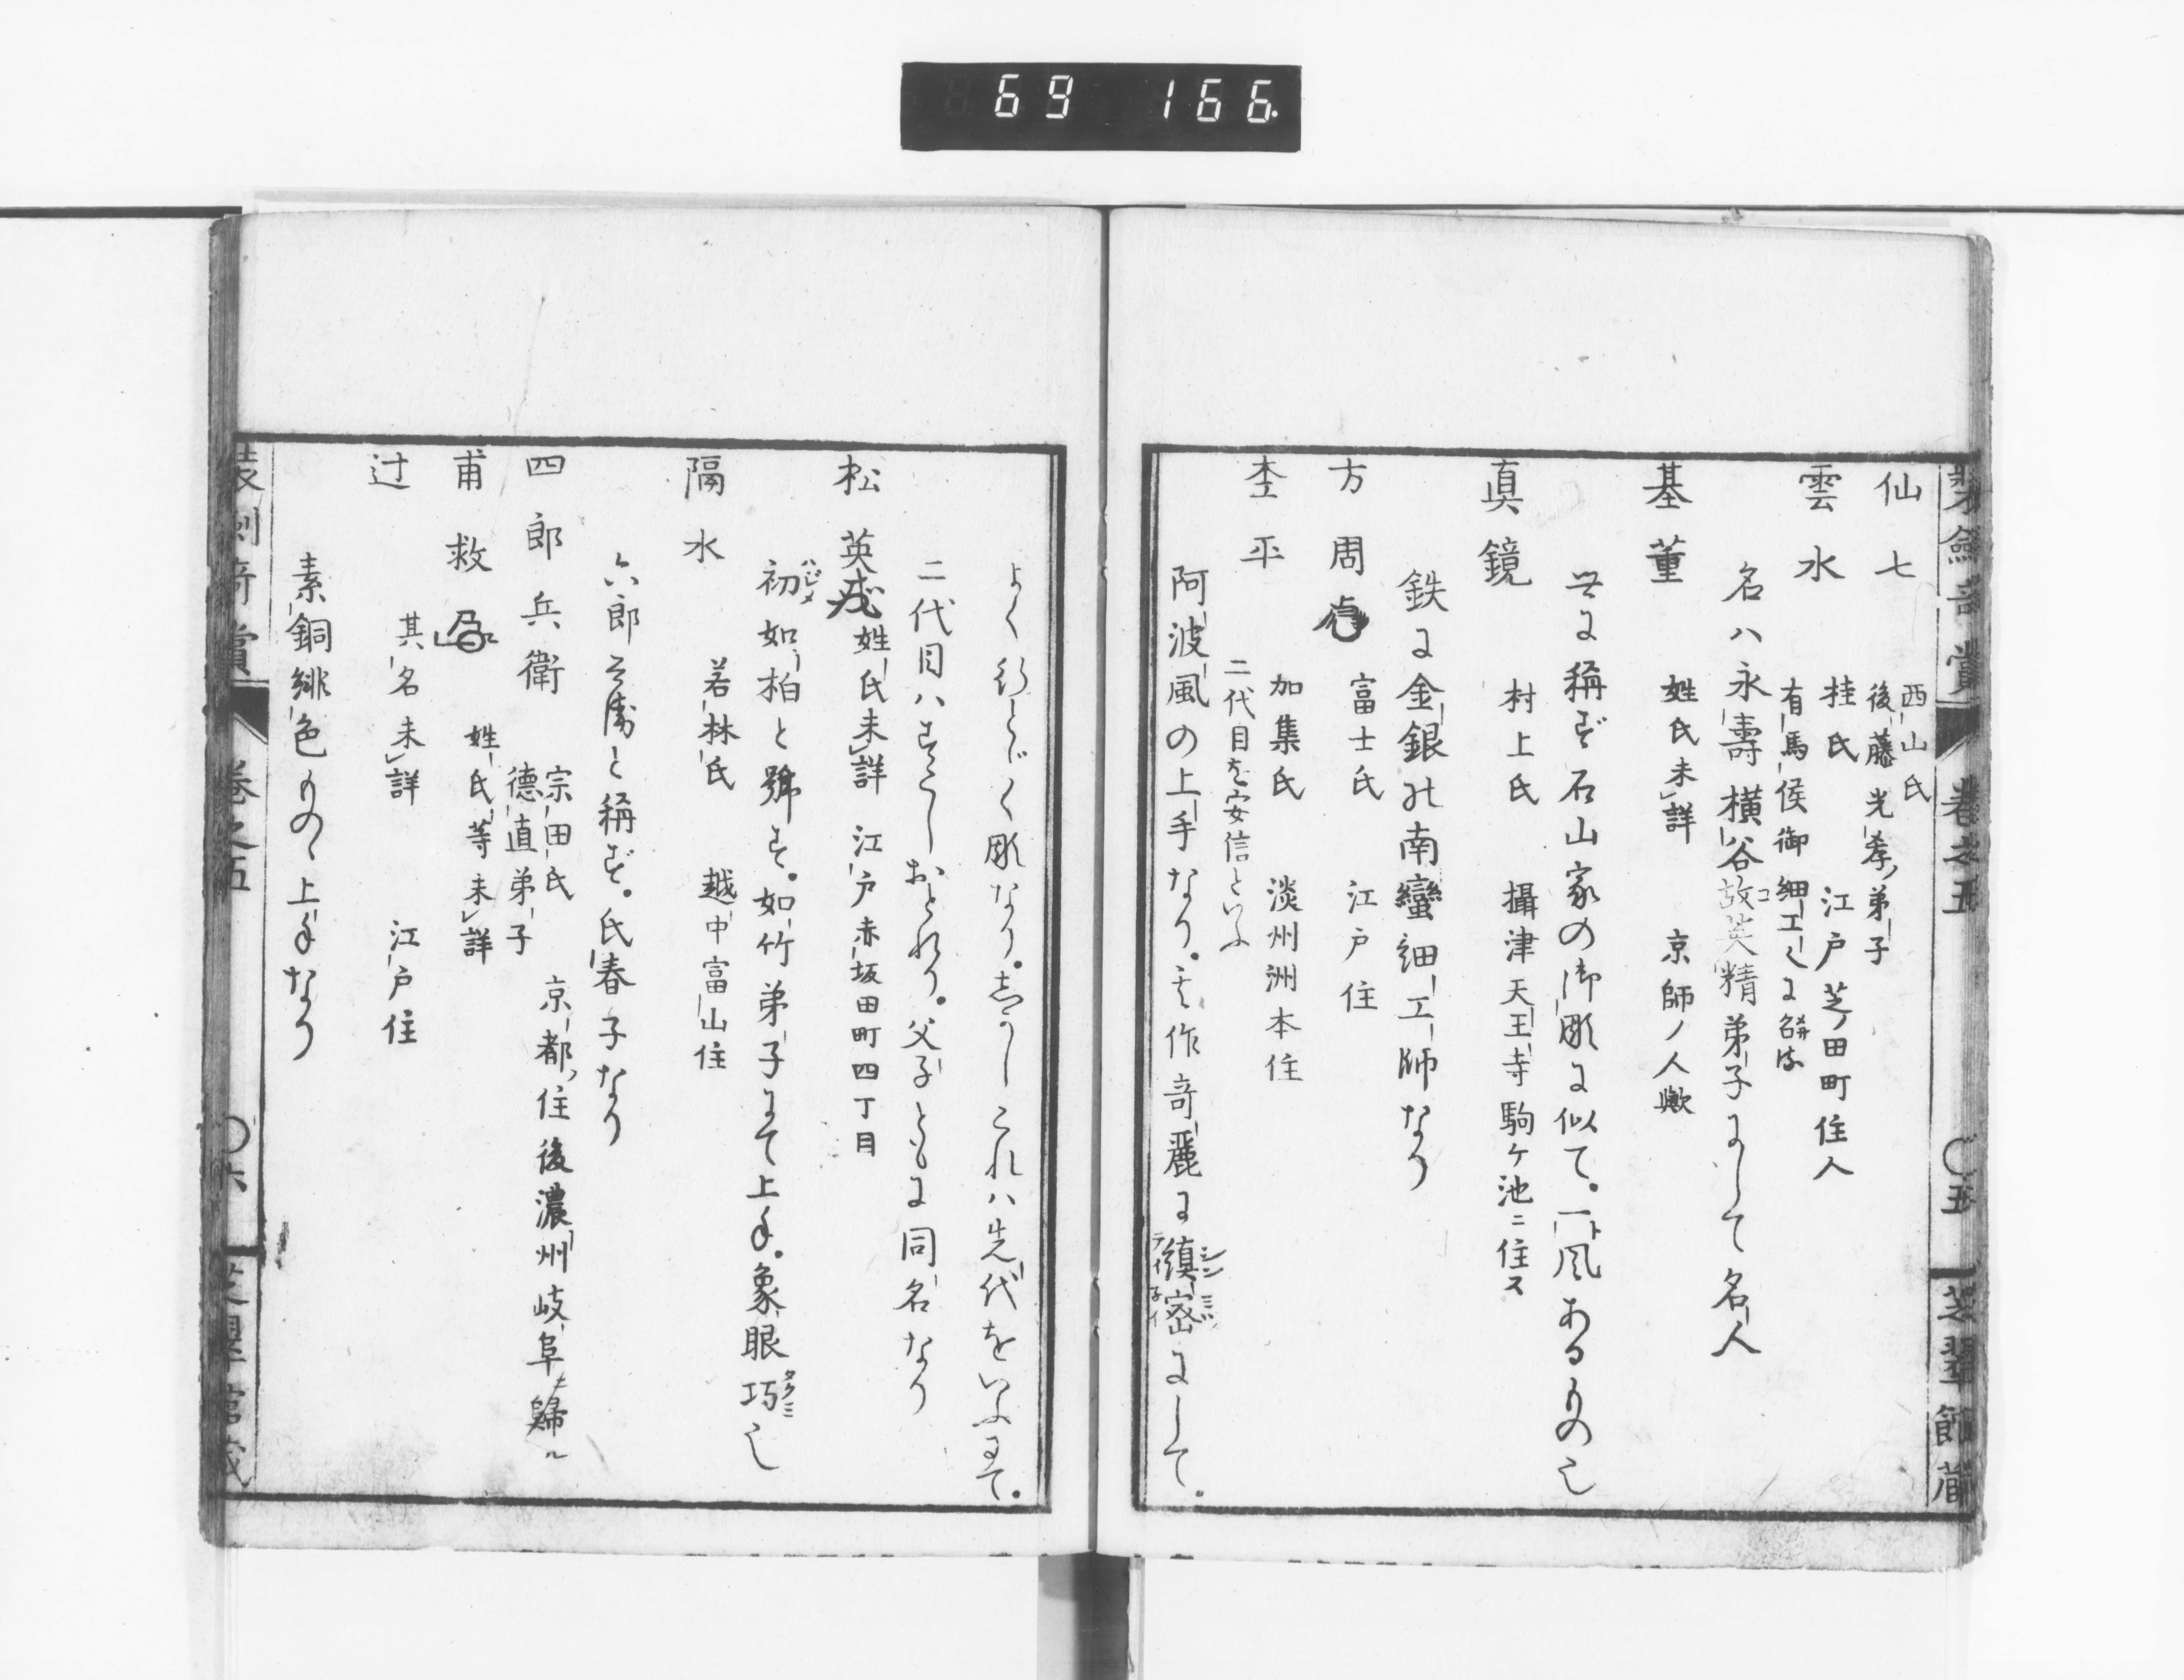 69 166
装劔奇賞 巻之五 ○五 芝翠館蔵
仙七 西山氏
後藤光孝弟子
雲水 桂氏 江戸芝田町住人
有馬侯御細工人に召る
名ハ永壽横谷故英精弟子にして名人
基董 姓氏未詳 京師ノ人歟
世に稱ず石山家の御彫に似て。一ト風あるもの也
眞鏡 村上氏 攝津天王寺駒ケ池ニ住ス
鉄に金銀の南蠻細工師なり
方周 富士氏 江戸住
李平 加集氏 淡州洲本住
二代目を安信といふ
阿波風の上手なり。其作奇麗に縝密にして。
シンミツ
テイネイ
よく行とゞく彫なり。志かしこれハ先代をいふにて。
二代目ハすこしおとれり。父子ともに同名なり
松英 姓氏未詳 江戸赤坂田町四丁目
初如柏と號す。如竹弟子にて上手。象眼巧也
ハジメ
タクミ
隔水 若林氏 越中富山住
六郎と稱ず。氏春子なり
四郎兵衛 宗田氏 京都住後濃州岐阜ニ歸ル
德直弟子
甫救 姓氏等未詳
辻 其名未詳 江戸住
素銅緋色もの上手なり
装劔奇賞 巻之五 ○六 芝翠館蔵